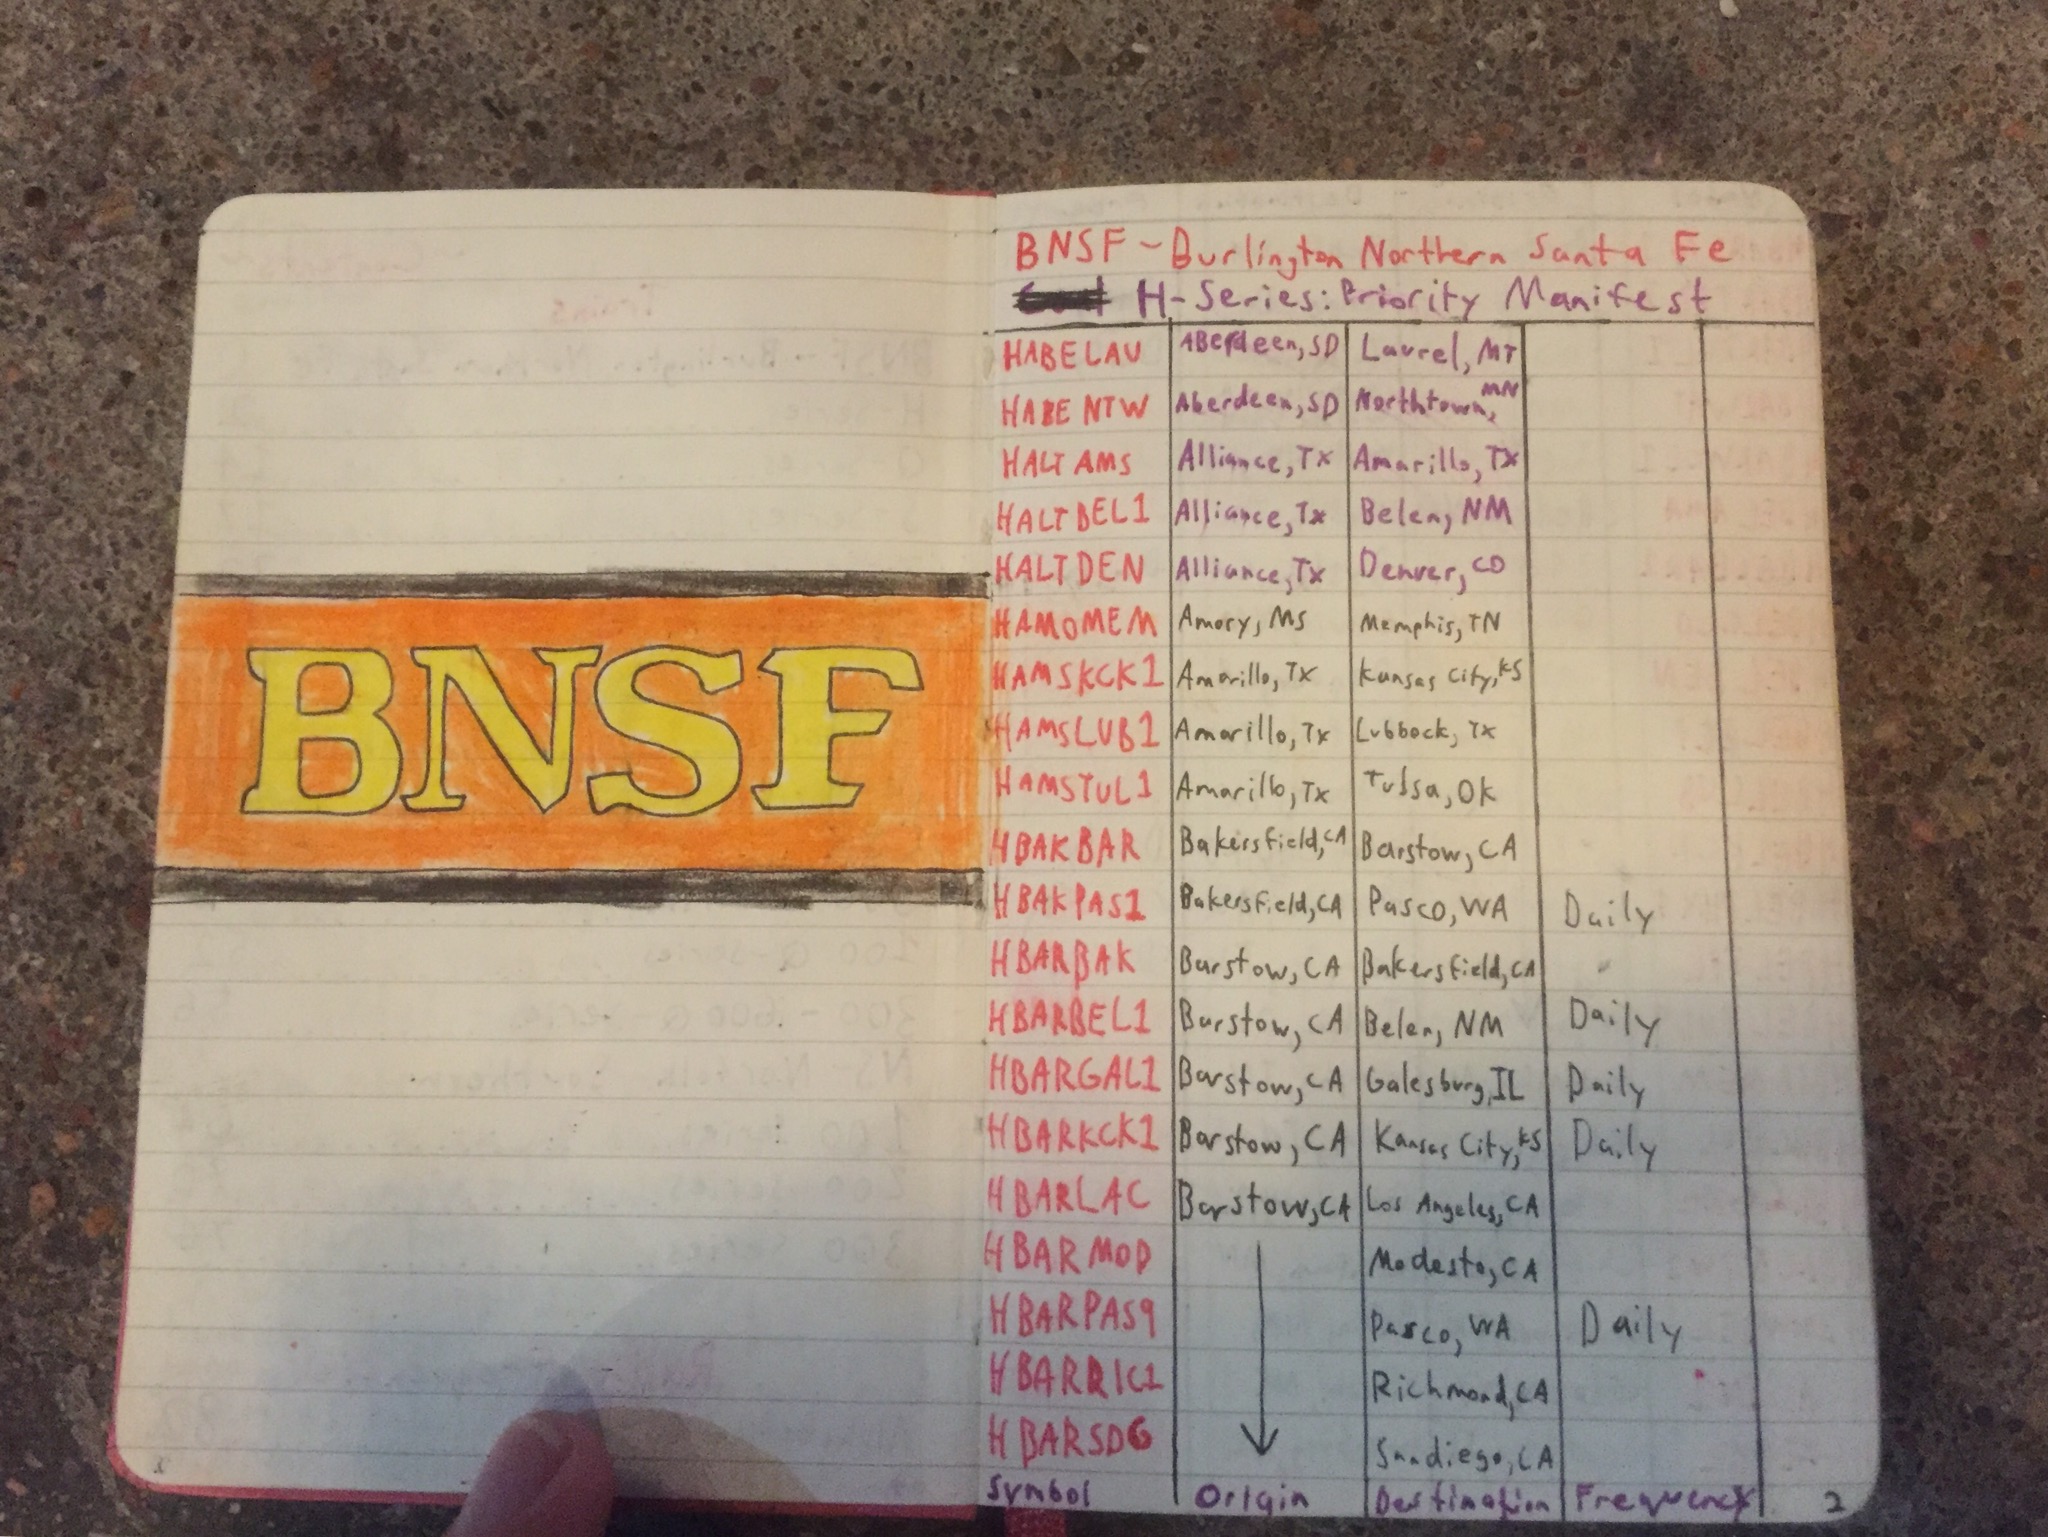 BNSF
BNSF - Burlington Northern Santa Fe
H-Series: Priority Manifest
HABELAU Aberdeen, SD Laurel, MT
HABENTW Aberdeen, SD Northtown, MN
HALTAMS Alliance, TX Amarillo, TX
HALTBEL1 Alliance, TX Belen, NM
HALTDEN Alliance, TX Denver, CO
HAMOMEM Amory, MS Memphis, TN
HAMSKCK1 Amarillo, TX Kansas City, KS
HAMSLUB1 Amarillo, TX Lubbock, TX
HAMSTUL1 Amarillo, TX Tulsa, OK
HBAKBAR Bakersfield, CA Barstow, CA
HBAKPAS1 Bakersfield, CA Pasco, WA Daily
HBARBAK Barstow, CA Bakersfield, CA
HBARBEL1 Barstow, CA Belen, NM Daily
HBARGAL1 Barstow, CA Galesburg, IL Daily
HBARKCK1 Barstow, CA Kansas City, KS Daily
HBARLAC Barstow, CA Los Angeles, CA
HBARMOD Modesto, CA
HBARPAS9 Pasco, WA Daily
HBARRIC1 Richmond, CA
HBARSDG Sandiego, CA
Symbol Origin Destination Frequency 2